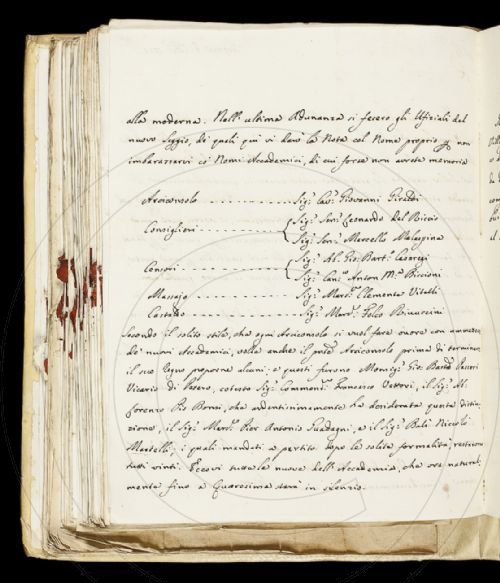 alla moderna. Nell' ultima Adunanza si fecero gli Ufiziali del
nuovo Seggio, de quali qui vi darò la Nota col Nome proprio p non
imbarazzarvi co Nomi Accademici, di cui forse non avrete memoria
Arciconsolo - - - - - - - - - - Sig.r Cav.e Giovanni Giraldi
Consiglieri - - - - - - - - - - { Sig.r Sen.e Leonardo del Riccio
Sig.r Sen.e Marcello Malaspina
Censori - - - - - - - - - - { Sig.r Ab. Gio: Bart.o Casaregi
Sig.r Can.co Anton M.a Biscioni
Massajo - - - - - - - - - - Sig.r Marc. Clemente Vitelli
Castaldo - - - - - - - - - - Sig.r Marc. Folco Rinuccini
Secondo il solito stile, che ogni Arciconsolo si vuol fare onore con
de' nuovi Accademici, volle anche il pnte Arciconsolo prima di terminare
il suo proporne alcuni: e questi furono Monsig.r Gio: Bart.o Passeri
Vicario di Pesaro, cotesto Sig.r Commend. Francesco Vettori, il Sig.r Ab.
Lorenzo Pio Bonsi, che ardentissimamente ha desiderata questa distin-
zione, il Sig.r Marc. Pier Antonio Guadagni, e il Sig.r Balì Niccolò
Martelli; i quali mandati a partito dopo le solite formalità, restarono
tutti vinti. Eccovi tutte le nuove dell' Accademia, che ora natural-
mente fino a Quaresima starà in silenzio.